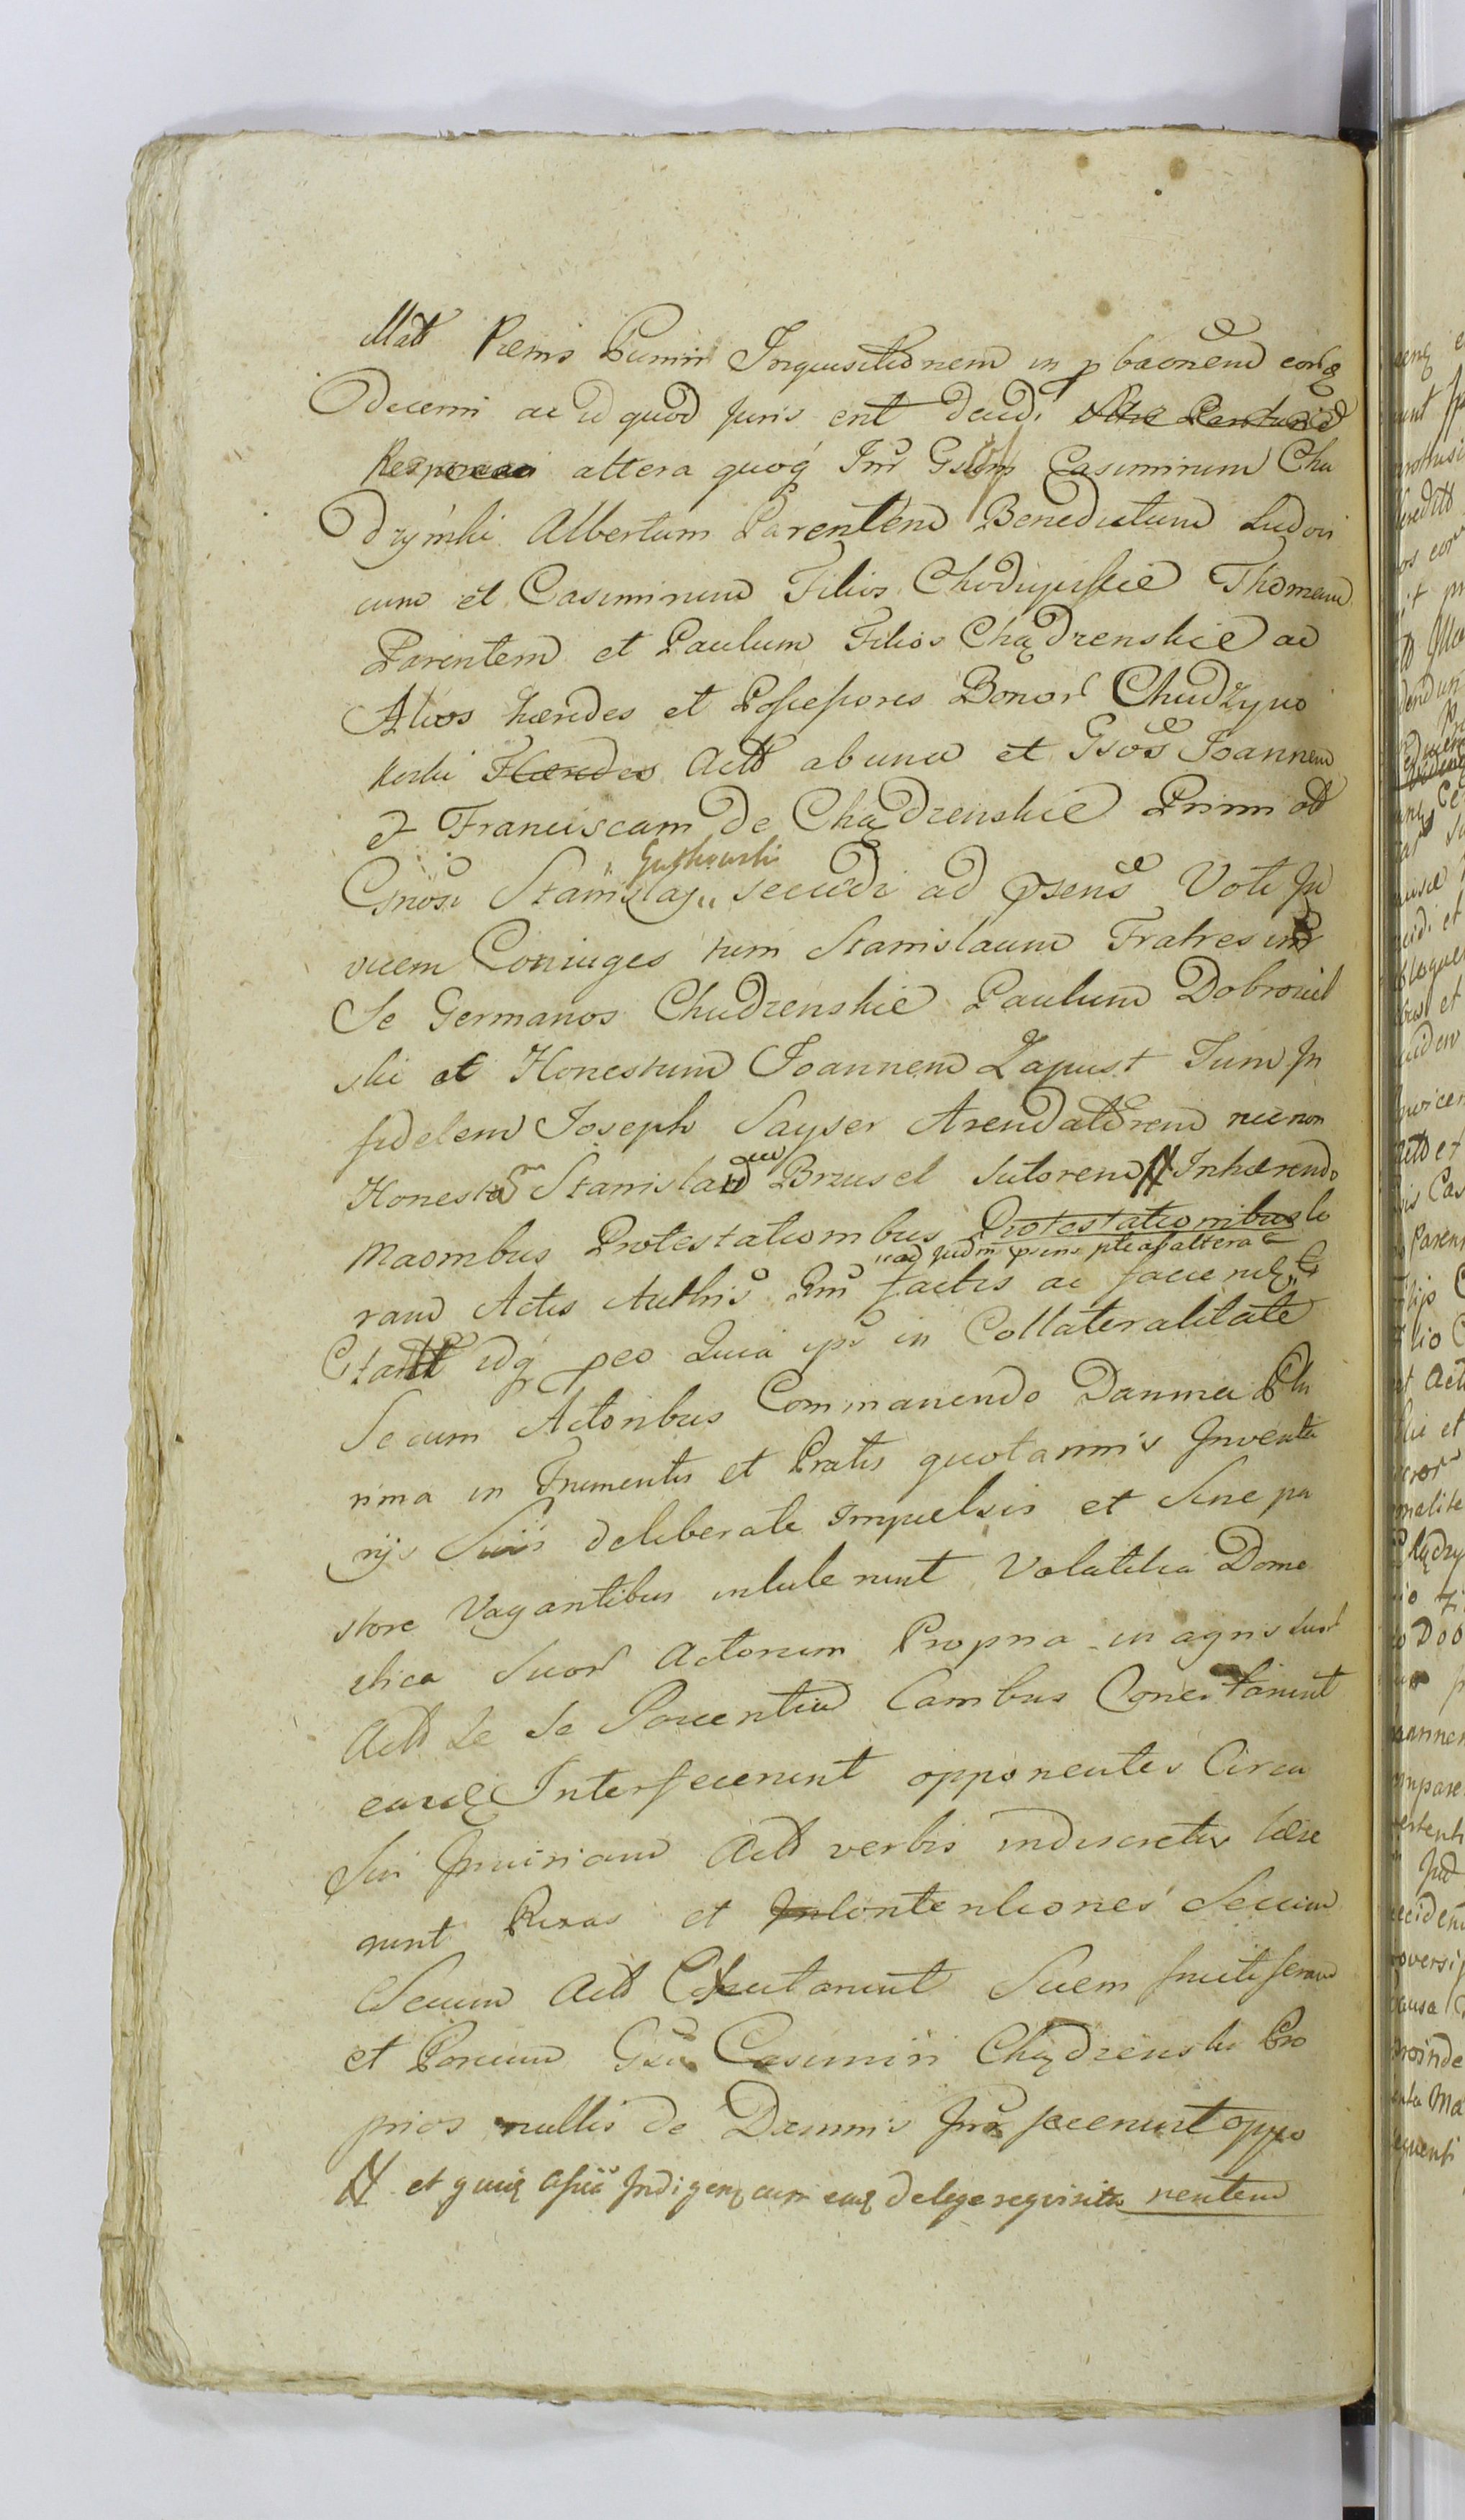 Matt Præmis Inquisitionem in pbaonem eorg
decerni ac id quod Juris erit decidi
altera quoq Inr Gsum Casimirum Chu
drzynski Albertum Parentem Benedictum Ludovi
cum et Casimirum Filios Thomam
Parentem et Paulum Filios Chądzenskie ac
Alios hæredes et Possessores Bonor Chudzyno
Hæredes Actt ab una et Gsos Joannem
et Franciscam de Chądzenskie Primi ad
Gnosi Stanislaj secundi ad psens Voti In
Gutkowski
vicem Coniuges tum Stanislaum Fratres inr
Se Germanos Chudzenskie Paulum Dobrowil
ski et Honestum Joannem Zapust Tum In
fidelem Joseph Sayser Arendatorem necnon
Honestum Stanislaum Brzusel Sutorem Inhærendo
Maombus Protestationibus Protestationibus co
ad Judm psens
ram Actis Authis factis ac
Citatt idq peo Quia ips in Collateralitate
Secum Actoribus Commanendo Damna Plu
rima in Frumentis et Pratis quotannis Inventa
rijs Suis deliberate Impulsis et Sine pa
store Vagantibus intulerunt Volatilia Dome
stica Suor Actorum Propria in agris suor
Actt Se Se Canibus Concitarunt
easq Interfecerunt opponentes Circa
Sui Iniuriam Actt verbis indiscretis læse
runt Rixas et Contentiones Secum
Secum Actt Suem fructiferam
et Porcum Gsi Casimiri Chądzenski Pro
prios nullis de Damnis fecerunt oppo
et Indigenq cum eaq de lege requisita nentem